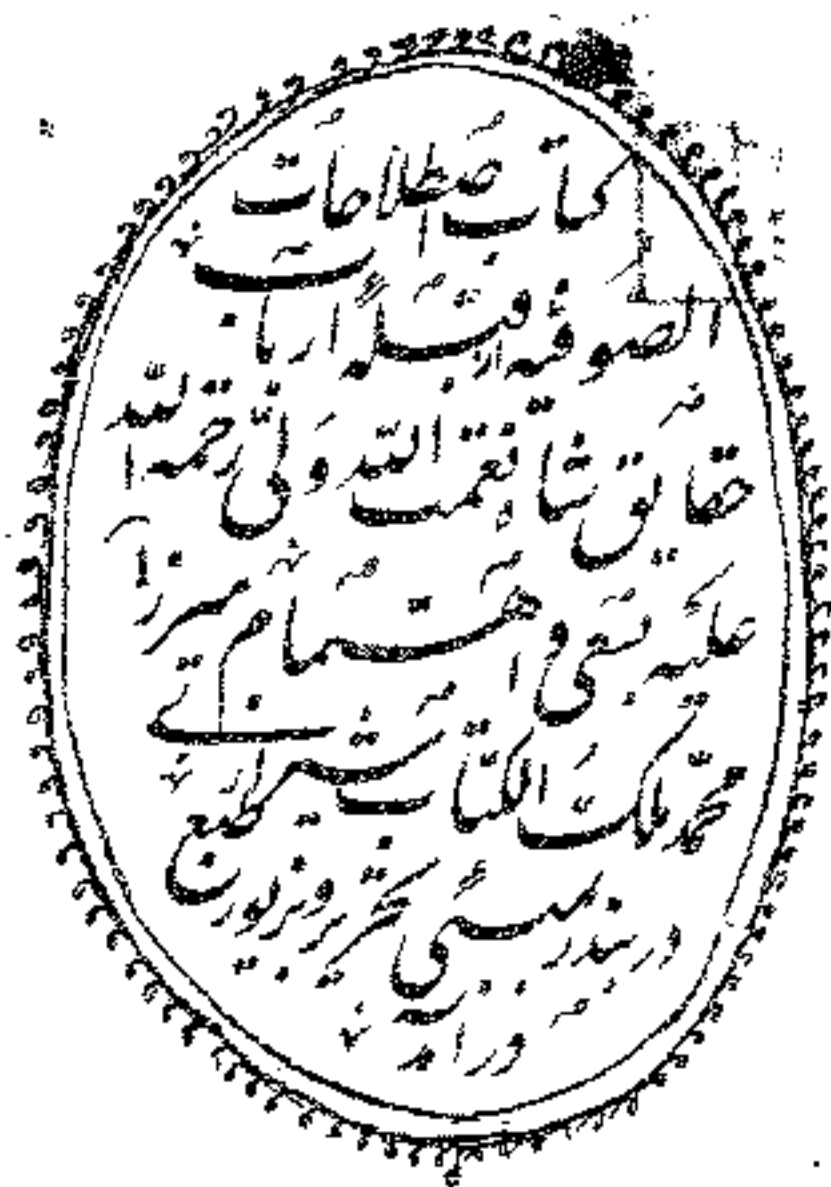 کتاب اصطلاحات
الصوفیه از قبلهٔ ارباب
حقایق شاه نعمت الله ولی رحمة الله
علیه بسعی و اهتمام میرزا
محمد ملک الکتاب شیرازی
در بندر بمبئی بزیور طبع
در آمد